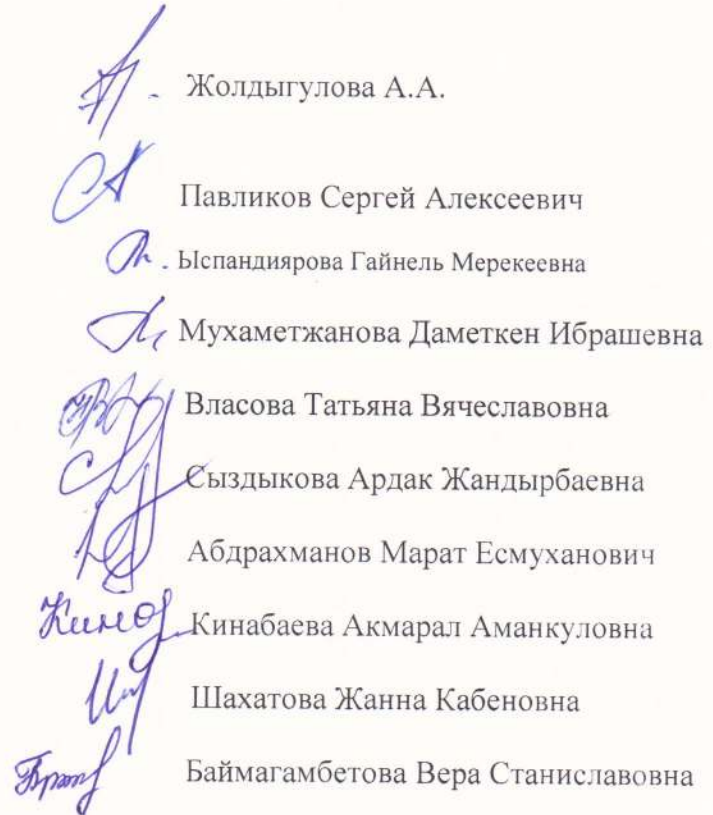 Жолдыгулова А.А.
Павликов Сергей Алексеевич
Ыспандиярова Гайнель Мерекеевна
Мухаметжанова Даметкен Ибрашевна
Власова Татьяна Вячеславовна
Сыздыкова Ардак Жандырбаевна
Абдрахманов Марат Есмуханович
Кинабаева Акмарал Аманкуловна
Шахатова Жанна Кабеновна
Баймагамбетова Вера Станиславовна